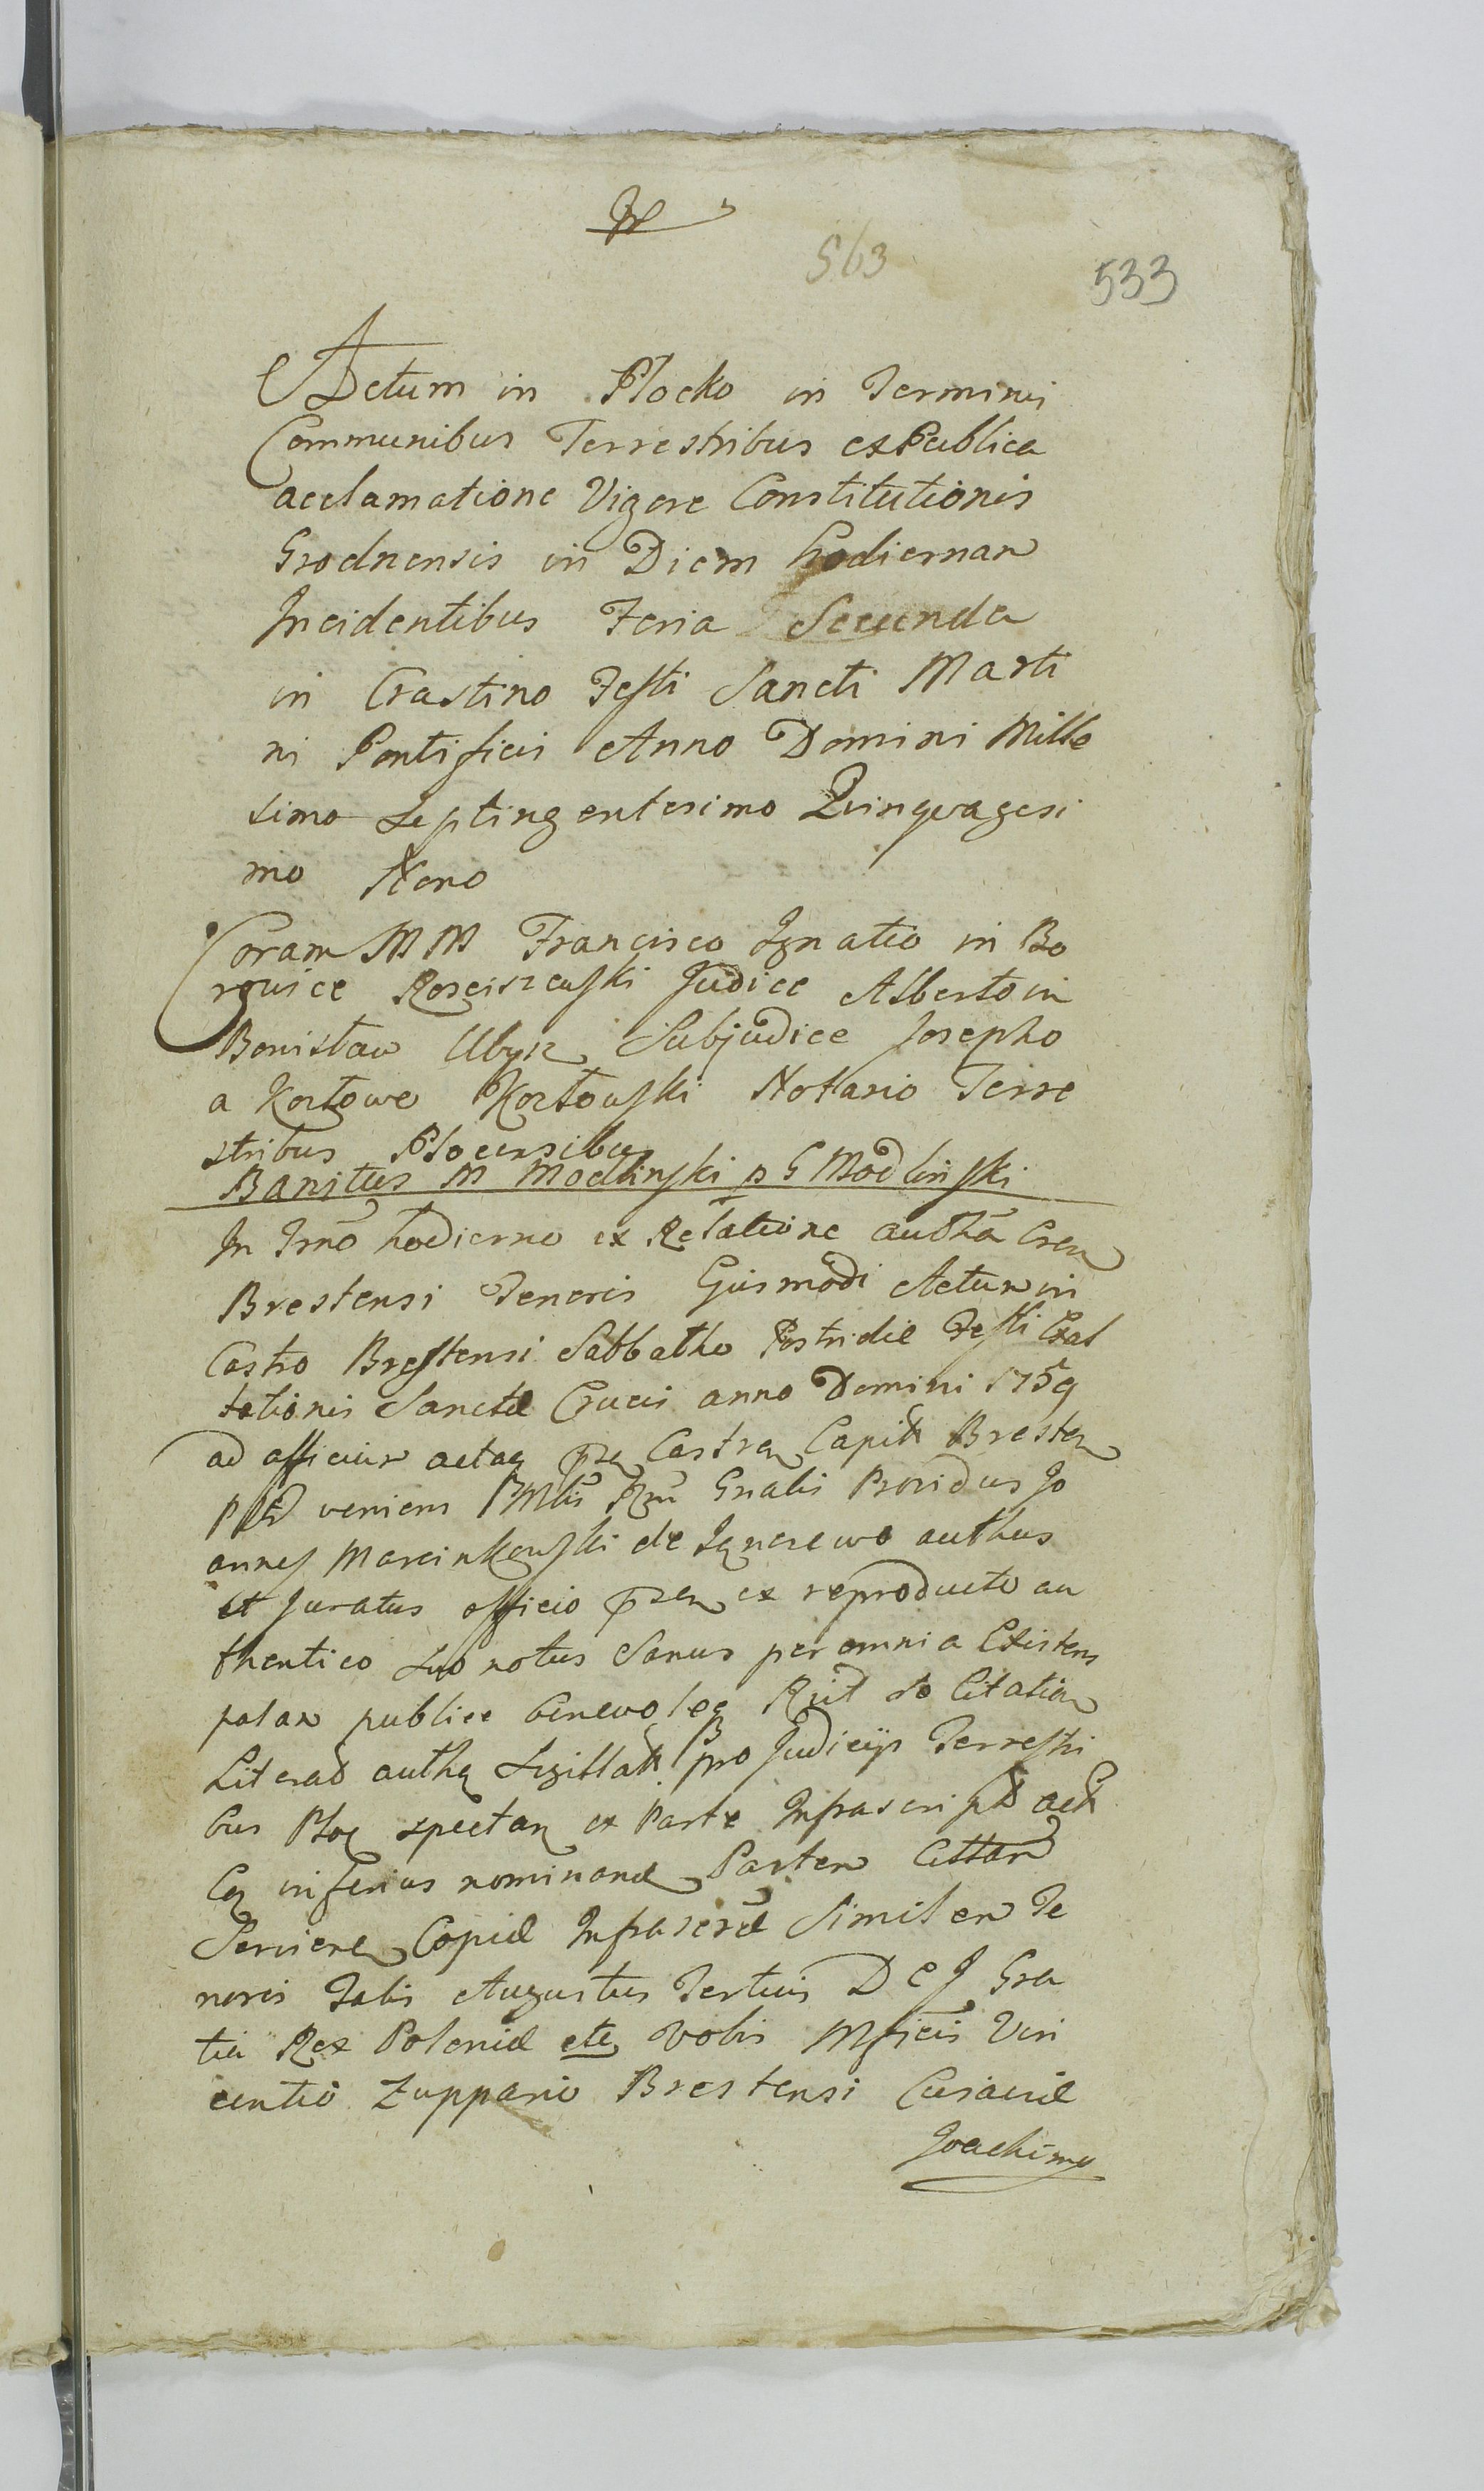 563
533
Actum in Plocko in Terminis
Communibus Terrestribus ex Publica
acclamatione Vigore Constitutionis
Grodnensis in Diem hodiernam
Incidentibus Feria Secunda
in Crastino Festi Sancti Marti
ni Pontificis Anno Domini Mille
simo Septingentesimo Quinquagesi
mo Nono
Coram MM Francisco Ignatio in Bo
rzuice Rosciszewski Judice Alberto in
Bonislaw Ubysz Subjudice Josepho
a Kozlowo Kozlowski Notario Terre
stribus Plocensibus
Banitus M Modlinski p G Modlinski
In Trno hodierno ex Relatione autha Cren
Brestensi Tenoris Ejusmodi Actum in
Castro Brestensi Sabbatho Postridie Festi Exal
tationis Sanctæ Crucis anno Domini 1759
ad officium actaq prn Castren Capit Bresten
veniens Gnalis Providus Jo
annes Marcinkowski de authus
et Juratus officio prn ex reproducto au
thentico suo notus Sanus per omnia Existens
palam publice benevoleq Rcit se Citation
Literas authq Sigillat pro Judicijs Terrestri
bus Ploc spectan ex Parte Infrascript act
Cq inferius nominand Partem Cittan
Serviend Copiæ Infrascræ Similem Te
noris Talis Augustus Tertius D E J Gra
tia Rex Poloniæ etc Vobis Mficis Vin
centio Zuppario Brestensi Cujaviæ
Joachimo